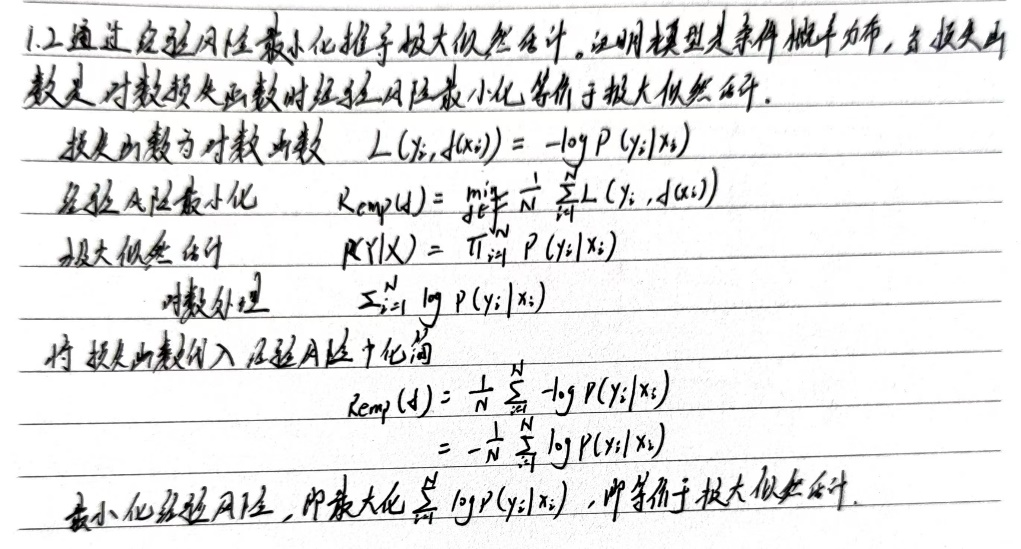 1.2通过经验风险最小化推导极大似然估计。证明模型是条件概率分布,当损失函
数是对数损失函数时经验风险最小化等价于极大似然估计.
损失函数为对数函数 L(yᵢ, f(xᵢ)) = -log P(yᵢ|xᵢ)
经验风险最小化 Remp(f) = min_{f∈F} 1/N ∑_{i=1}^{N} L(yᵢ, f(xᵢ))
极大似然估计 P(Y|X) = ∏_{i=1}^{N} P(yᵢ|xᵢ)
对数处理 ∑_{i=1}^{N} log P(yᵢ|xᵢ)
将损失函数代入经验风险中化简
Remp(f) = 1/N ∑_{i=1}^{N} -log P(yᵢ|xᵢ)
= -1/N ∑_{i=1}^{N} log P(yᵢ|xᵢ)
最小化经验风险,即最大化 ∑_{i=1}^{N} log P(yᵢ|xᵢ),即等价于极大似然估计.